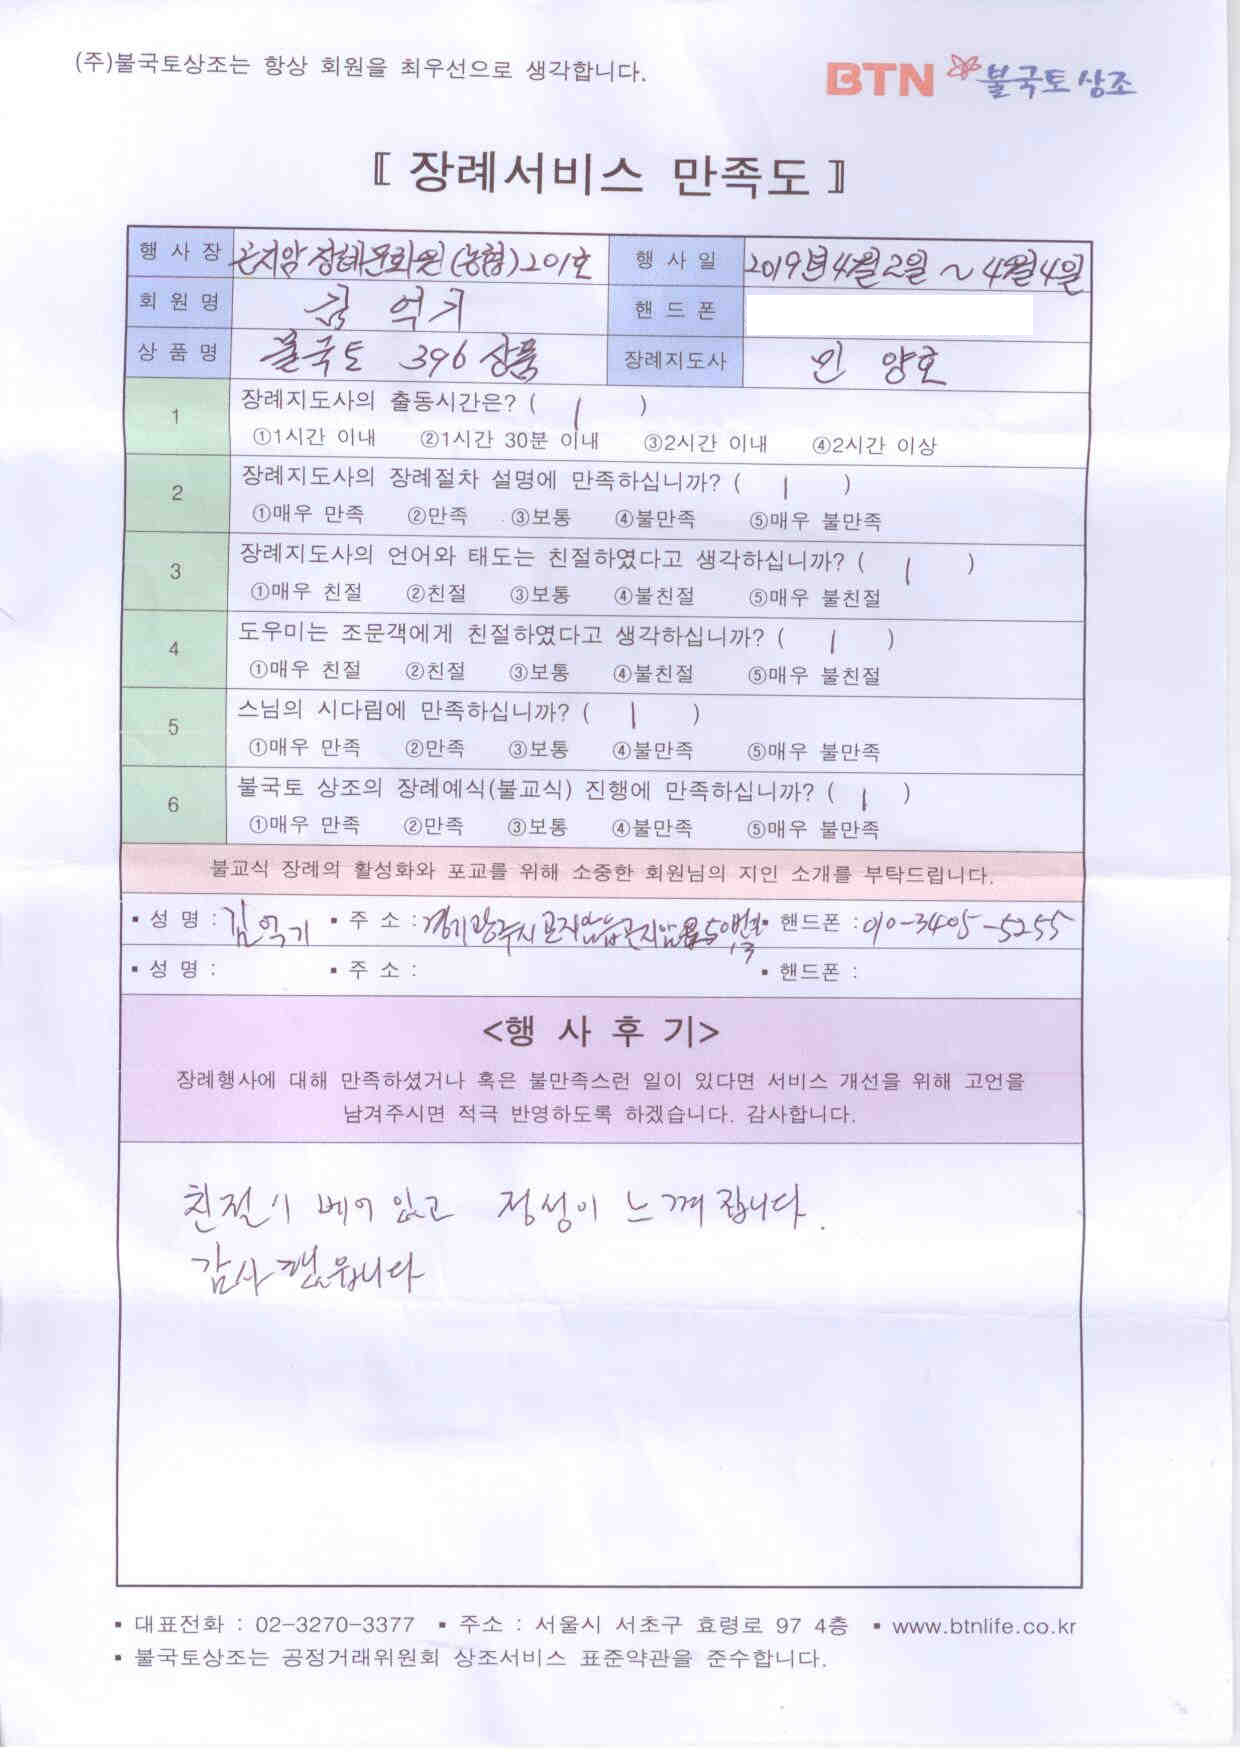 (주)불국토상조는 항상 회원을 최우선으로 생각합니다.
BTN 불국토 상조
〖 장례서비스 만족도 〗
행 사 장 곤지암장례문화원(농협)201호 행 사 일 2019년4월2일 ~ 4월4일
회 원 명 김 억기 핸 드 폰
상 품 명 불국토 396 상품 장례지도사 민 양호
1 장례지도사의 출동시간은? ( 1 )
①1시간 이내 ②1시간 30분 이내 ③2시간 이내 ④2시간 이상
2 장례지도사의 장례절차 설명에 만족하십니까? ( 1 )
①매우 만족 ②만족 ③보통 ④불만족 ⑤매우 불만족
3 장례지도사의 언어와 태도는 친절하였다고 생각하십니까? ( 1 )
①매우 친절 ②친절 ③보통 ④불친절 ⑤매우 불친절
4 도우미는 조문객에게 친절하였다고 생각하십니까? ( 1 )
①매우 친절 ②친절 ③보통 ④불친절 ⑤매우 불친절
5 스님의 시다림에 만족하십니까? ( 1 )
①매우 만족 ②만족 ③보통 ④불만족 ⑤매우 불만족
6 불국토 상조의 장례예식(불교식) 진행에 만족하십니까? ( 1 )
①매우 만족 ②만족 ③보통 ④불만족 ⑤매우 불만족
불교식 장례의 활성화와 포교를 위해 소중한 회원님의 지인 소개를 부탁드립니다.
▪ 성 명 : 김억기 ▪ 주 소 : 경기광주시 곤지암읍 곤지암 ▪ 핸드폰 : 010-3405-5255
▪ 성 명 : ▪ 주 소 : ▪ 핸드폰 :
<행 사 후 기>
장례행사에 대해 만족하셨거나 혹은 불만족스런 일이 있다면 서비스 개선을 위해 고언을
남겨주시면 적극 반영하도록 하겠습니다. 감사합니다.
친절이 베어 있고 정성이 느껴집니다.
감사
▪ 대표전화 : 02-3270-3377 ▪ 주소 : 서울시 서초구 효령로 97 4층 ▪ www.btnlife.co.kr
▪ 불국토상조는 공정거래위원회 상조서비스 표준약관을 준수합니다.